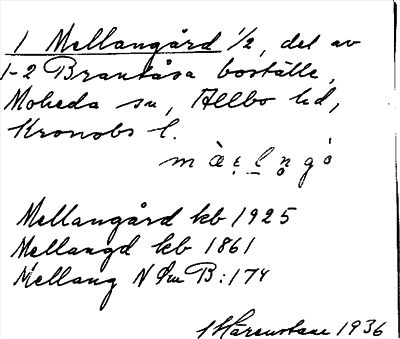 1 Mellangård 1/2, del av
1-2 Brantåsa boställe,
Moheda sn, Allbo hd,
Kronobs l.
Mellangård kb 1925
Mellangd kb 1861
Mellang N Sm B:174
1936